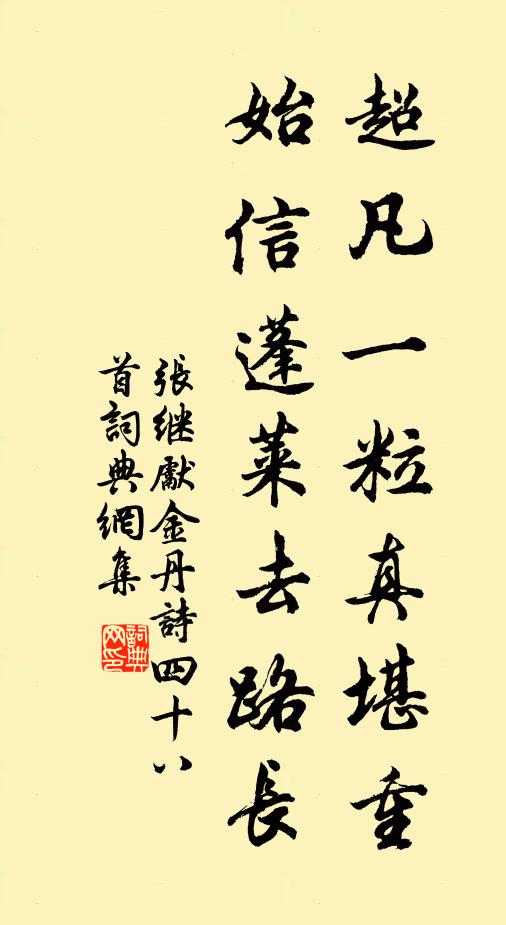 超凡一粒真堪重
始信蓬萊去路長
張继獻金丹詩四十八
首詞典網集
詞典
网印